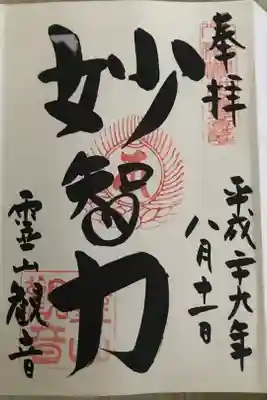 奉拝
平成二十九年
八月十一日
妙智力
霊山観音
霊山
観音